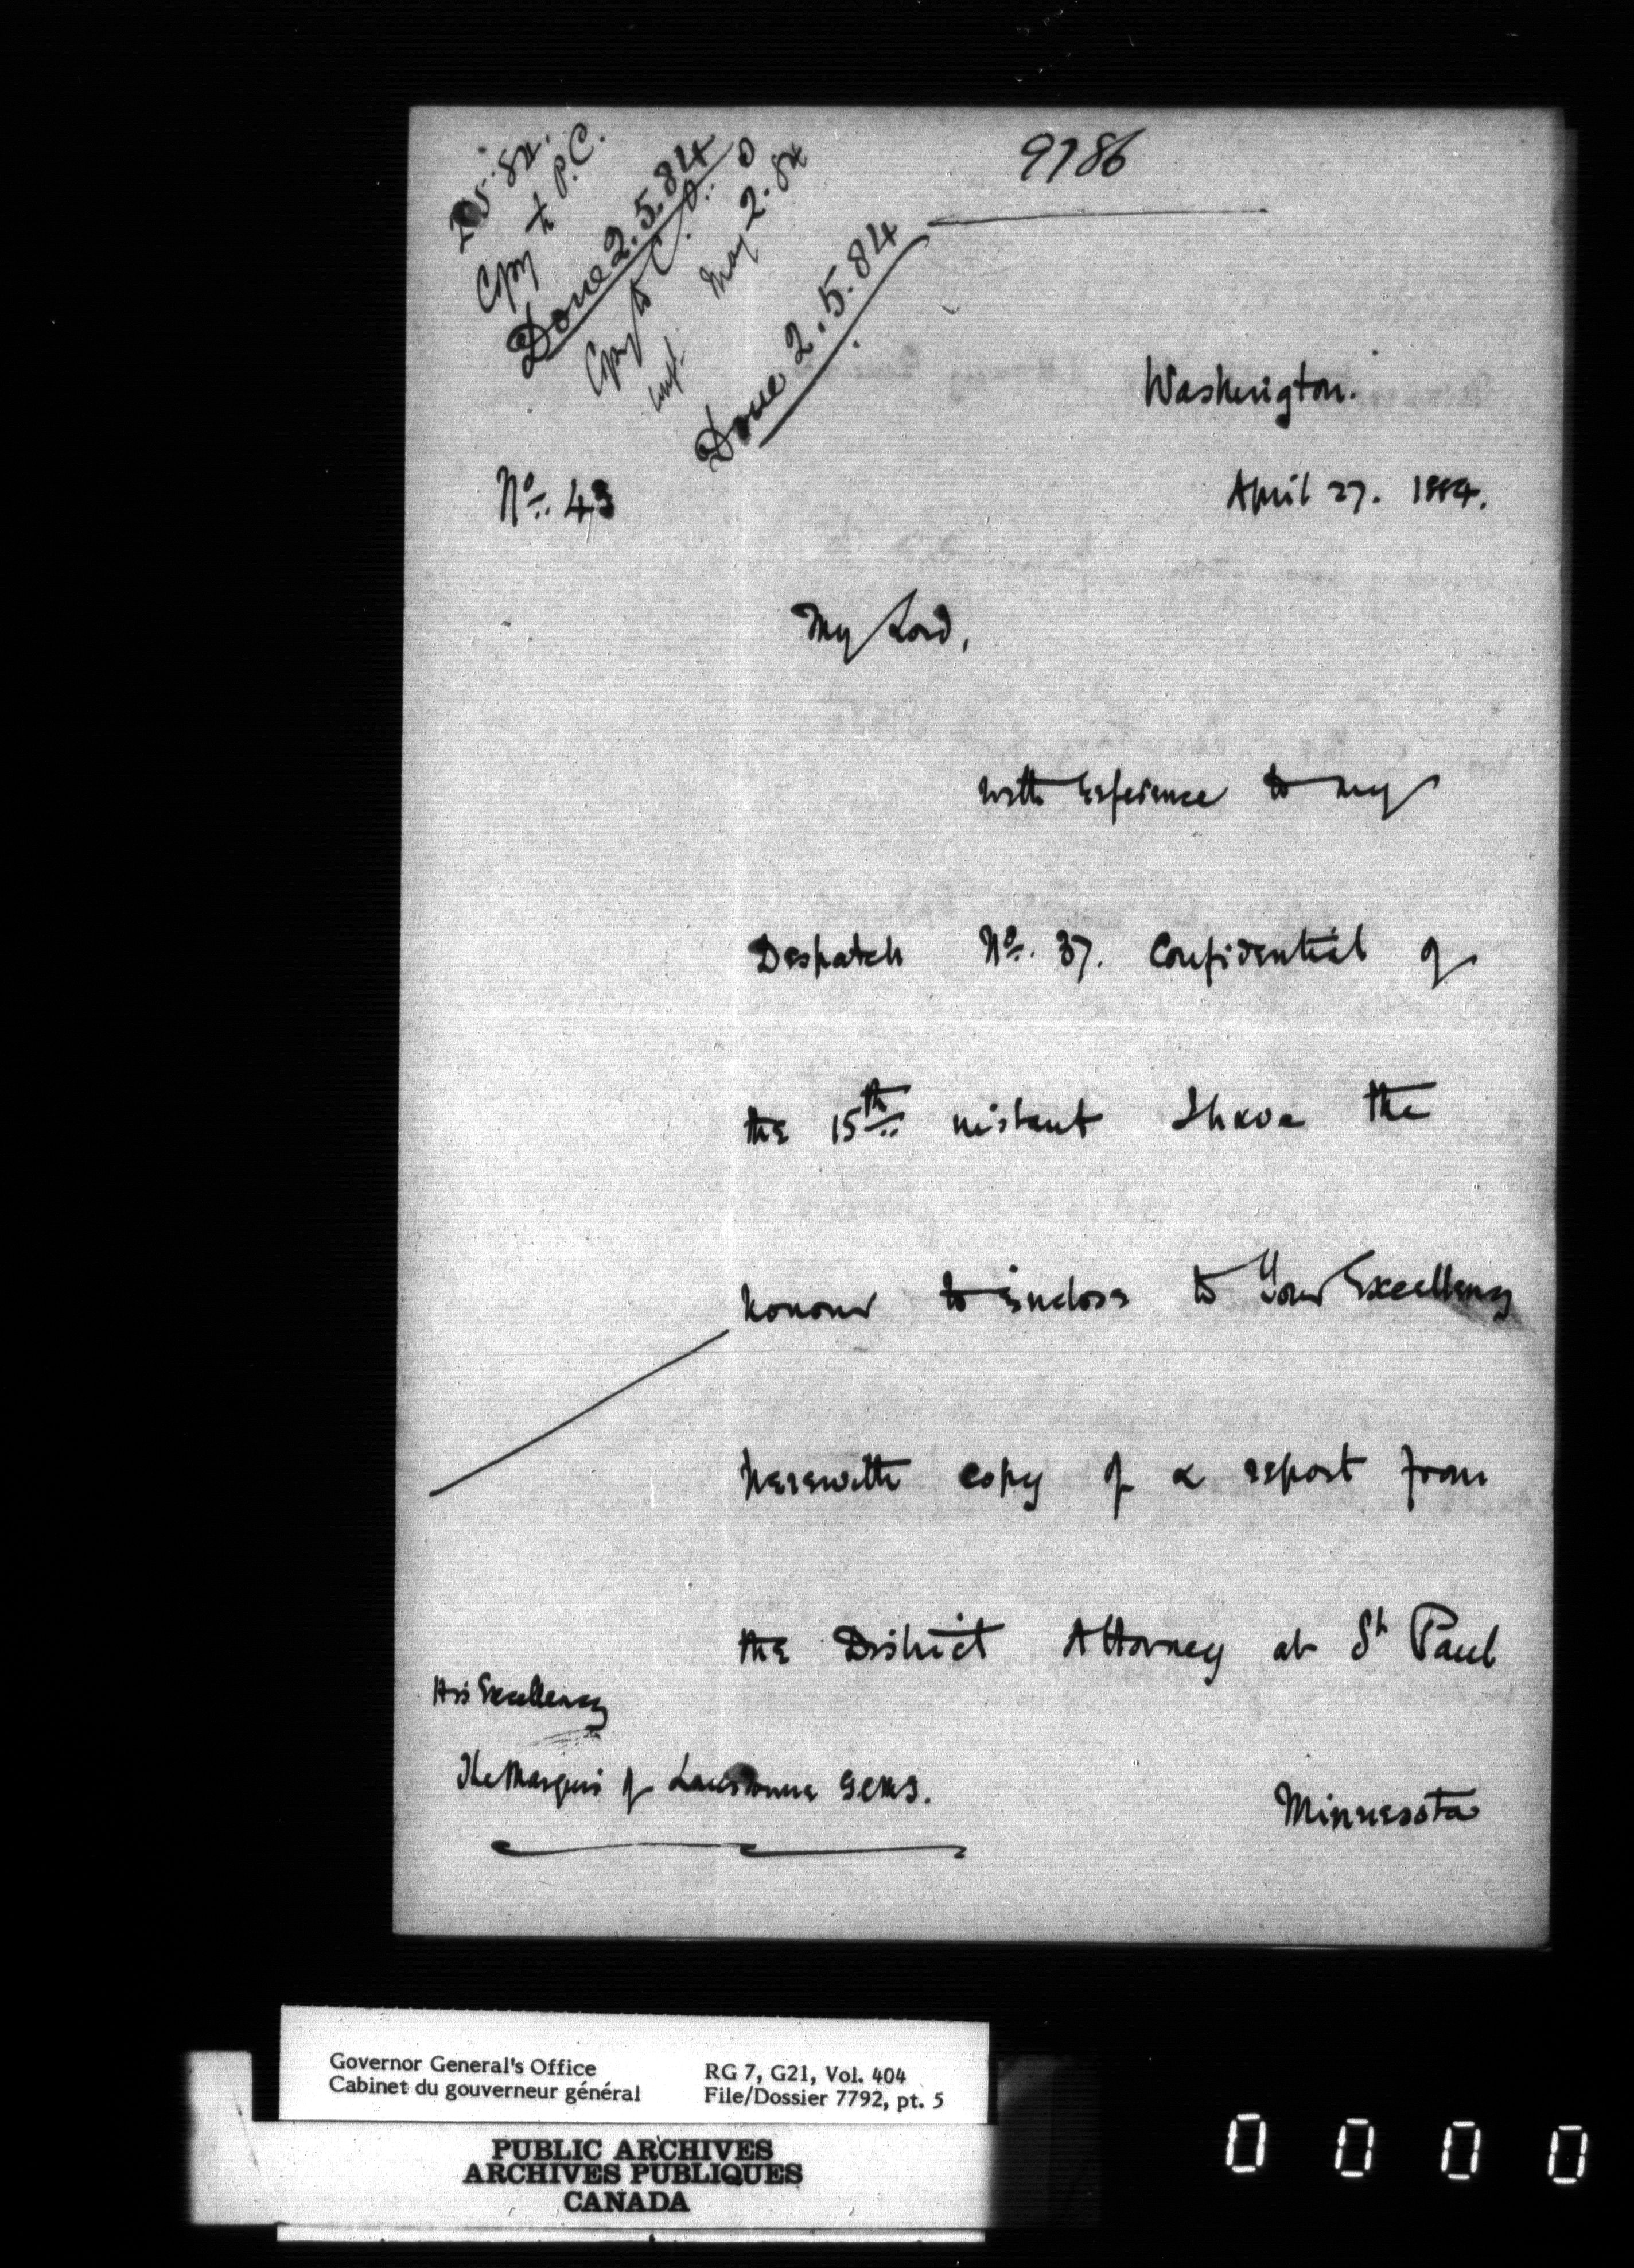 2.5.84.
Copy to P.C.
Done 2.5.84
Copy to C.O.
May 2.84
Done 2.5.84
9786
Washington.
April 27. 1884.
No. 43
My Lord,
With reference to my
Despatch No. 37. Confidential of
the 15th instant I have the
honour to inclose to Your Excellency
herewith copy of a report from
the District Attorney at St Paul
His Excellency
The Marquis of Lansdowne GCMG.
Minnesota
Governor General's Office
Cabinet du gouverneur général
RG 7, G21, Vol. 404
File/Dossier 7792, pt. 5
PUBLIC ARCHIVES
ARCHIVES PUBLIQUES
CANADA
0 0 0 0